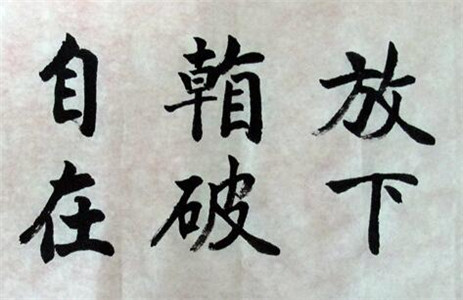 放下
看破
自在